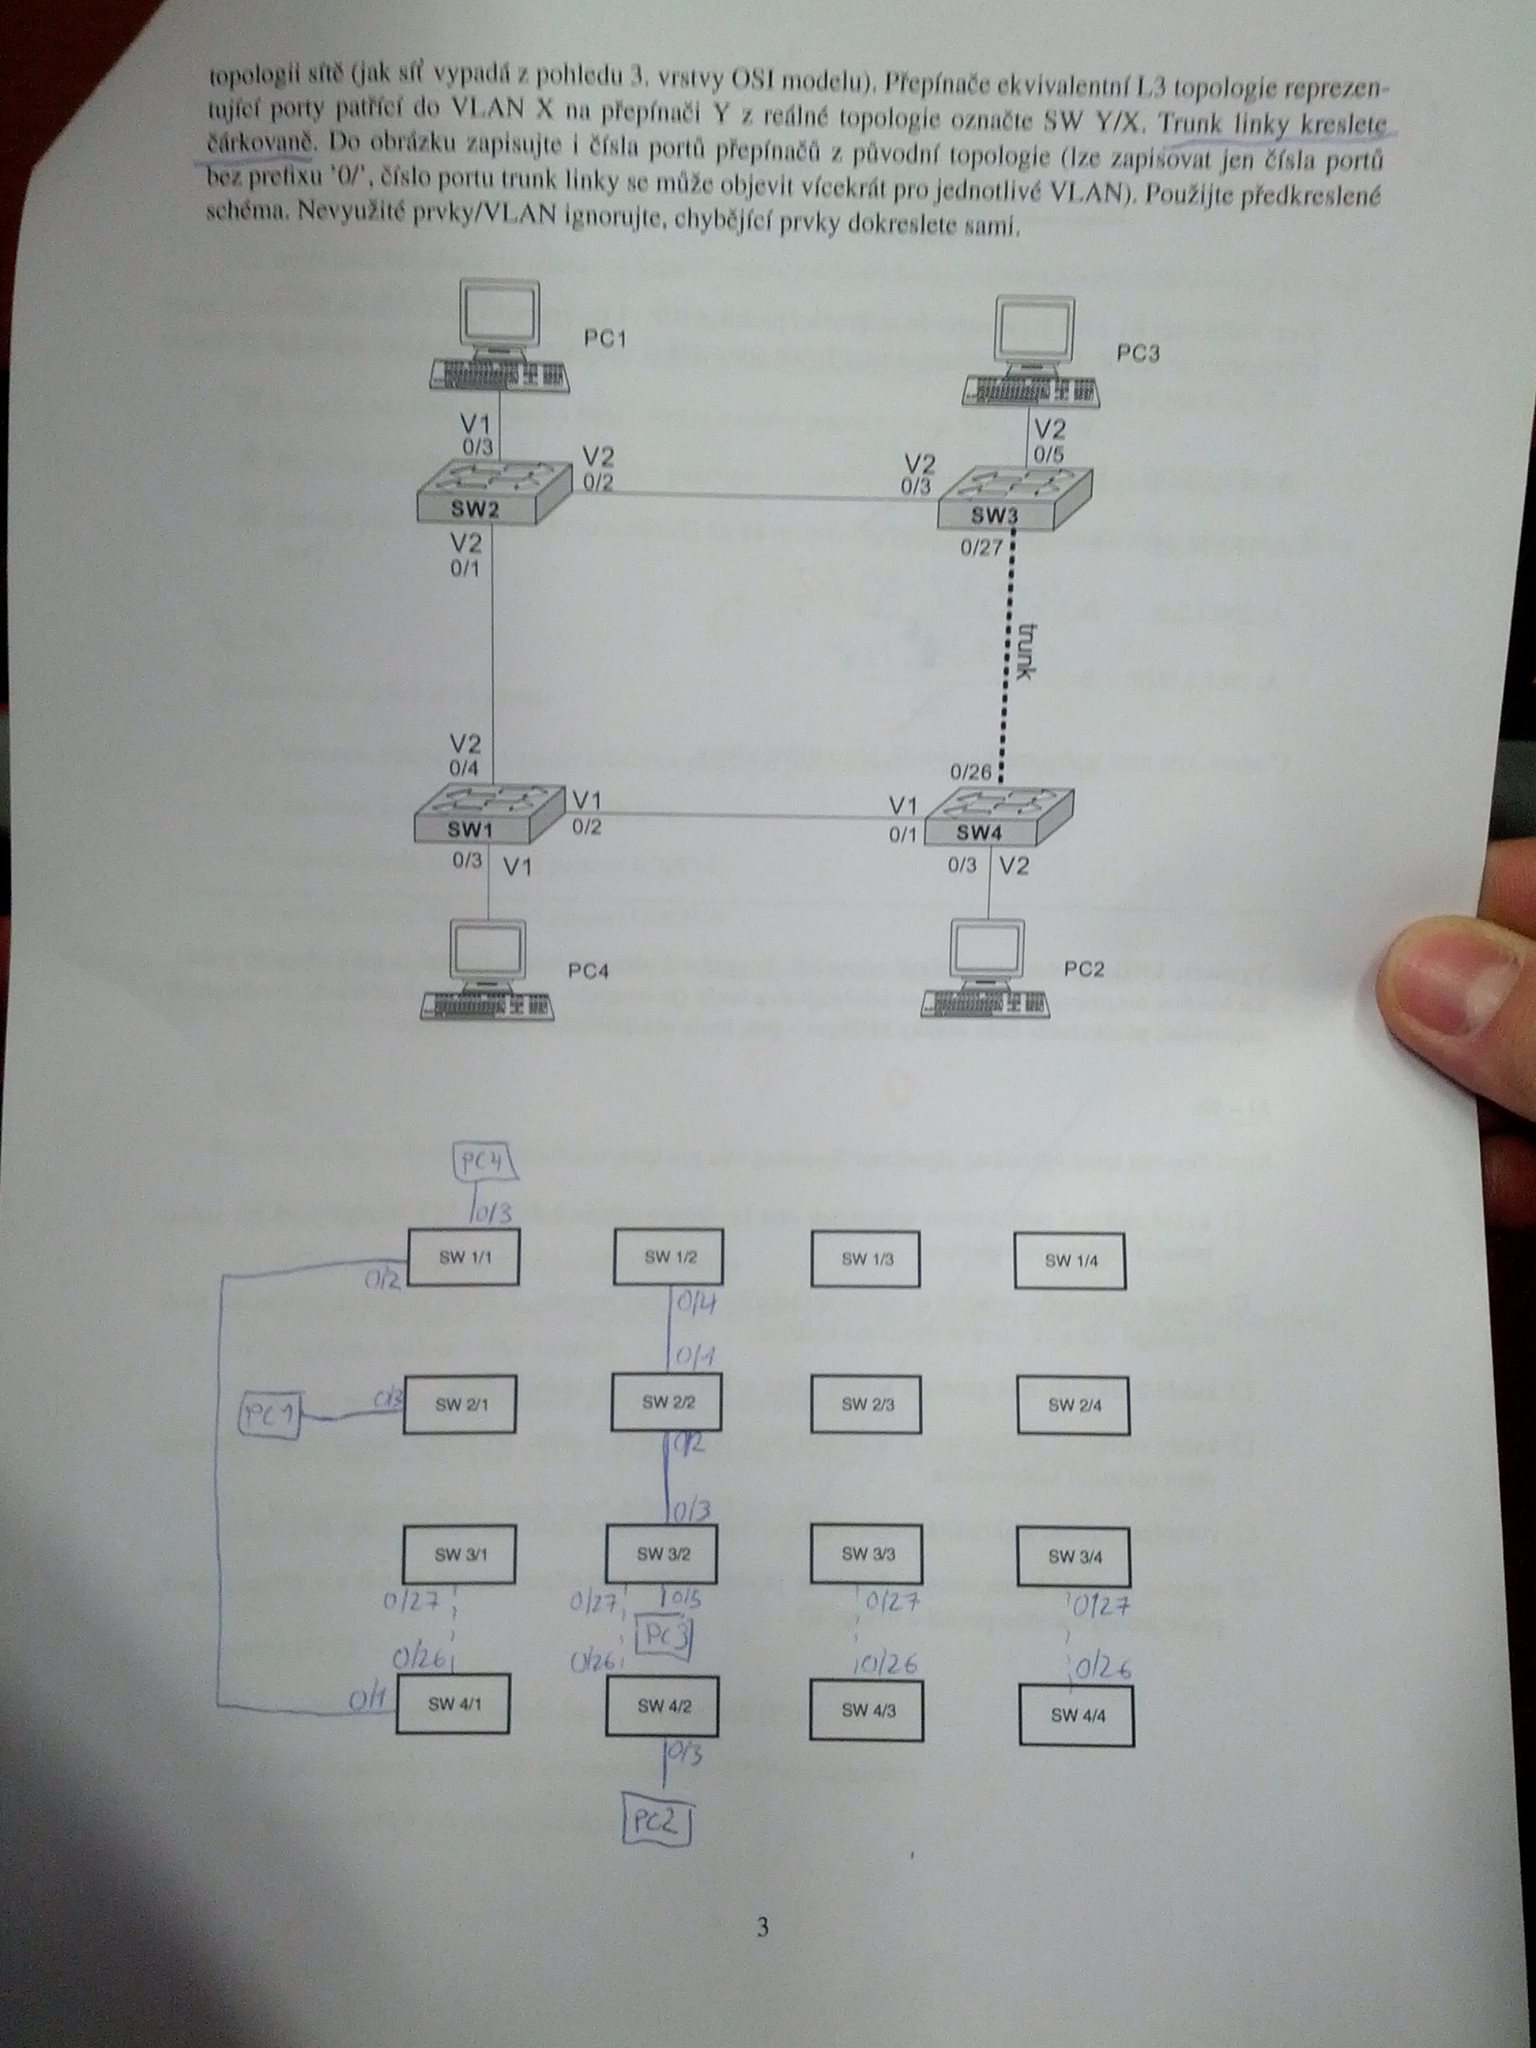 topologii sítě (jak síť vypadá z pohledu 3. vrstvy OSI modelu). Přepínače ekvivalentní L3 topologie reprezen-
tující porty patřící do VLAN X na přepínači Y z reálné topologie označte SW Y/X. Trunk linky kreslete
čárkovaně. Do obrázku zapisujte i čísla portů přepínačů z původní topologie (lze zapisovat jen čísla portů
bez prefixu '0/', číslo portu trunk linky se může objevit vícekrát pro jednotlivé VLAN). Použijte předkreslené
schéma. Nevyužité prvky/VLAN ignorujte, chybějící prvky dokreslete sami.
PC1
PC3
V1
0/3
V2
0/5
V2
0/2
V2
0/3
SW2
SW3
V2
0/1
0/27
trunk
V2
0/4
0/26
V1
0/2
V1
0/1
SW1
SW4
0/3 V1
0/3 V2
PC4
PC2
PC4
0/3
SW 1/1
SW 1/2
SW 1/3
SW 1/4
0/2
0/4
0/1
PC1
0/3
SW 2/1
SW 2/2
SW 2/3
SW 2/4
0/2
0/3
SW 3/1
SW 3/2
SW 3/3
SW 3/4
0/27
0/27
0/5
0/27
0/27
PC3
0/26
0/26
0/26
0/26
0/1
SW 4/1
SW 4/2
SW 4/3
SW 4/4
0/3
PC2
3